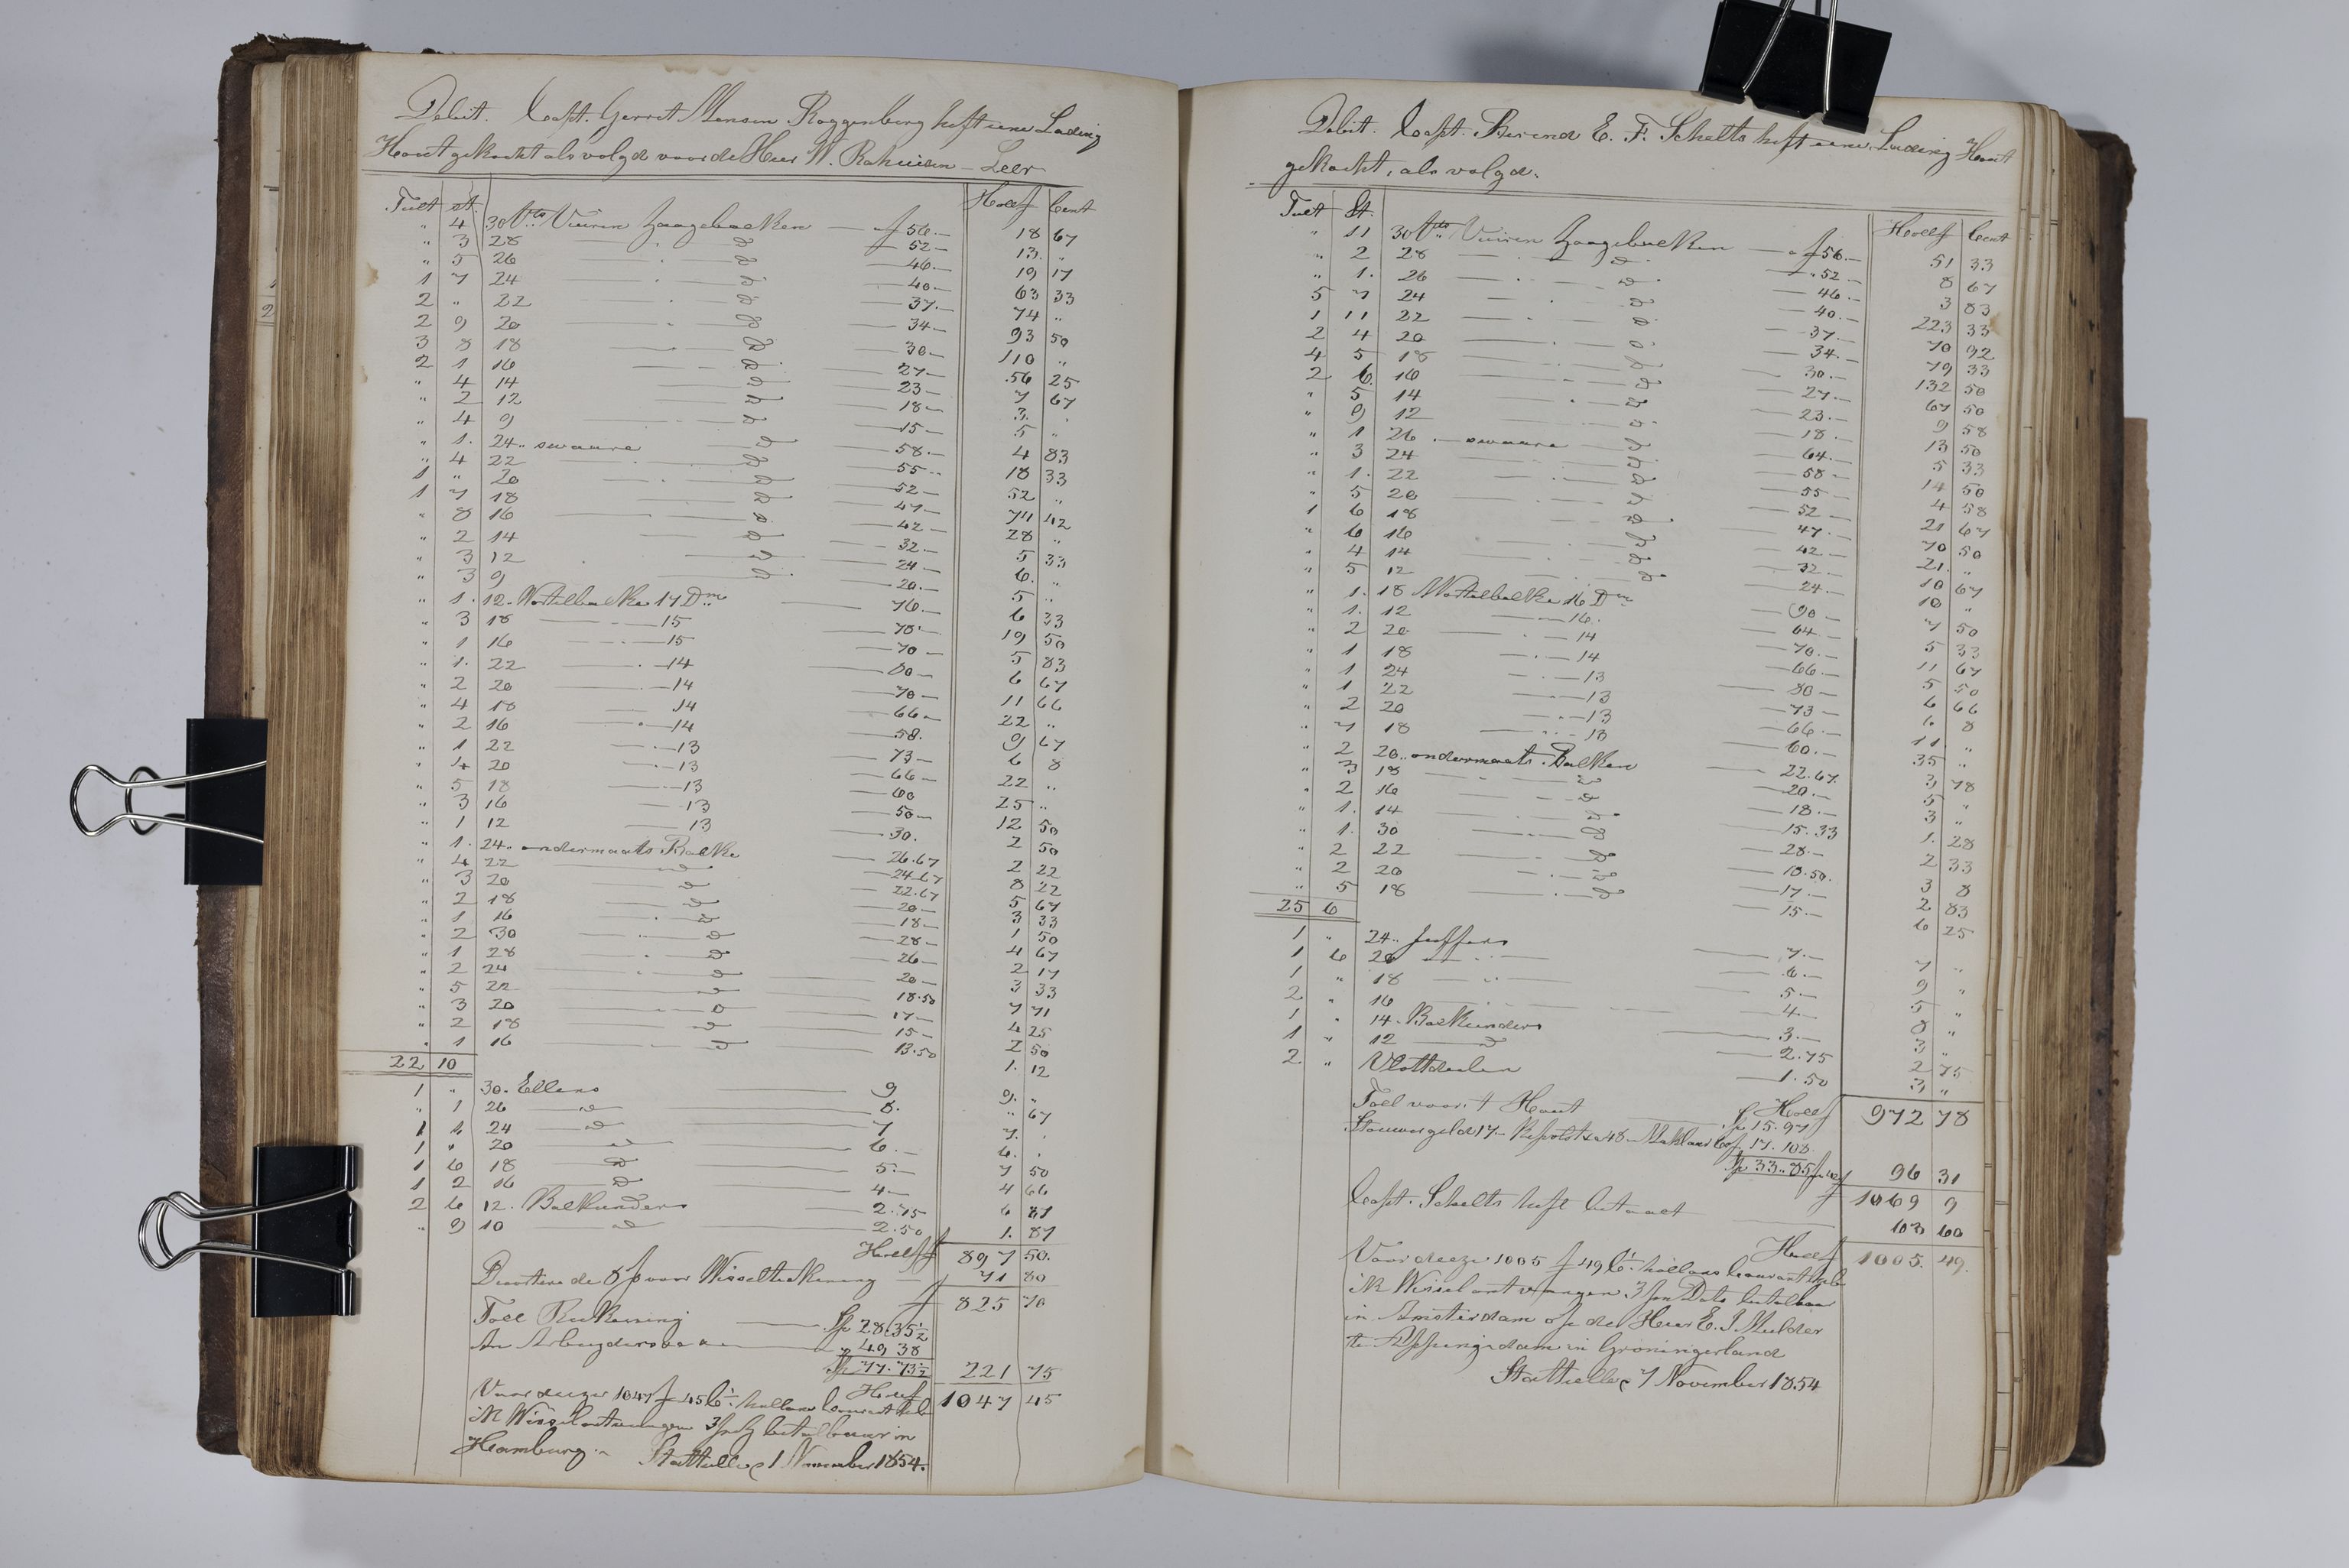 Debit. Capt. Gerret Mensen Roggenberg heft eene Lading
Hout gekocht als volgt voor de Heer W. Rahusen – Leer
Tult st. Hollf Cent
" 4 30 Vto Vuiren Zaagebalken — f 56.— 18 67
" 3 28 — d — f 52 — 13. "
" 5 26 — d — 46.— 19 17
1 7 24 — d — 40 — 63 33
2 " 22 — d — 37.— 74 "
2 9 20 — d — 34 — 93 50
3 8 18 — d — 30 — 110 "
2 1 16 — d — 27 — 56 25
" 4 14 — d — 23 — 7 67
" 2 12 — d — 18 — 3. "
" 4 9 — d — 15 — 5 "
" 1. 24 " swaare d — 58.— 4 83
" 4 22 — d — 55 .. 18 33
1 " 20 — d — 52 — 52 "
1 7 18 — d — 47 — 74 42
" 8 16 — d — 42 — 28 "
" 2 14 — d — 32.— 5 33
" 3 12 — d — 24 — 6. "
" 3 9 — d — 20.— 5 "
" 1. 12. Wortelbalke 17 Dm — 76.— 6 33
" 3 18 — 15 — 78.— 19 50
" 1 16 — 15 — 70 — 5 83
" 1. 22 — 14 — 80 — 6 67
" 2 20 — 14 — 70 — 11 66
" 4 18 — 14 — 66 — 22 "
" 2 16 — 14 — 58. 9 67
" 1 22 — 13 — 73 — 6 8
" 4 20 — 13 — 66 — 22 "
" 5 18 — 13 — 60 25 "
" 3 16 — 13 — 50 — 12 50
" 1 12 — 13 — 30. 2 50
" 1. 24 " ondermaats Balke — 26.67 2 22
" 4 22 — d — 24.67 8 22
" 3 20 — d — 22.67 5 67
" 2 18 — d — 20 — 3 33
" 1 16 — d — 18 — 1 50
" 2 30 — d — 28 — 4 67
" 1 28 — d — 26 — 2 17
" 2 24 — d — 20 — 3 33
" 5 22 — d — 18.50 7 71
" 3 20 — d — 17 — 4 25
" 2 18 — d — 15 — 2 50
" 1 16 — d — 13.50 1. 12
22 10
1 " 30. Ellens — 9 9. "
" 1 26 — d — 8. " 67
1 " 24 — d — 7 7. "
1 " 20 — d — 6.— 6. "
1 6 18 — d — 5.— 7 50
1 2 16 — d — 4 — 4 66
2 6 12. Balkunders — 2.75 6 87
" 9 10 — d — 2.50 1. 87
Hollf 897 50.
de 8 p voor Wisseltrekening — 71 80
f 825 70
Toll Rekening — Sp 28.35½
An Arbeyders — " 49 38
Sp 77.73½ 221 75
Hollf 1047 45
Voor deeze 1047 f 45 Ct. hollans Courant heb
ik Wissel ontvangen betalbaar in
Hamburg.
Stathelle 1 November 1854.
Debit. Capt. Berend E. F. Schelts heft eene Lading Hout
gekocht, als volgd.
Tult St. Hollf Cent
" 11 30 Vto Vuiren Zaagebalken — f 56.— 51 33
" 2 28 — d — " 52 — 8 67
" 1. 26 — d — 46.— 3 83
5 7 24 — d — 40.— 223 33
1 11 22 — d — 37.— 70 92
2 4 20 — d — 34.— 79 33
4 5 18 — d — 30.— 132 50
2 6 16 — d — 27.— 67 50
" 5 14 — d — 23.— 9 58
" 9 12 — d — 18.— 13 50
" 1 26 .— swaare d — 64.— 5 33
" 3 24 — d — 58 — 14 50
" 1. 22 — d — 55 — 4 58
" 5 20 — d — 52 — 21 67
1 6 18 — d — 47.— 70 50
" 6 16 — d — 42 — 21. "
" 4 14 — d — 32.— 10 67
" 5 12 — d — 24.— 10 "
" 1. 18 Wortelbalke 16 Dm — 90 — 7 50
" 1. 12 — 16. — 64 — 5 33
" 2 20 — 14 — 70.— 11 67
" 1 18 — 14 — 66 — 5 50
" 1 24 — 13 — 80 — 6 66
" 1 22 — 13 — 73 — 6 8
" 2 20 — 13 — 66.— 11 "
" 7 18 — 13 — 60.— 35 "
" 2 20 " ondermaats Balken — 22.67. 3 78
" 3 18 — d — 20.— 5 "
" 2 16 — d — 18.— 3 "
" 1. 14 — d — 15.33 1. 28
" 1. 30 — d — 28.— 2 33
" 2 22 — d — 18.50. 3 8
" 2 20 — d — 17.— 2 83
" 5 18 — d — 15.— 6 25
25 6
1 " 24 " Juffers — 7.— 7 "
1 6 20 — 6.— 9 "
1 " 18 — 5.— 5 "
2 " 16 — 4 — 8 "
1 " 14. Balkunders — 3.— 3 "
1 " 12 — d — 2.75 2 75
2 " Vlottdeelen — 1.50 3 "
Hollf 972 78
Toll voor 't Hout — Sp 15.97
Stouwergeld 17.—
Sp 33..85 96 31
f 1069 9
Capt. Schelts heft betaald — 63 60
Hollf 1005. 49.
Voor deeze 1005 f 49 Ct. hollans Courant heb
ik Wissel ontvangen Dato betalbaar
in Amsterdam op de Heer E. J. Mulder
te Appingedam in Groningerland
Stathelle 7 November 1854